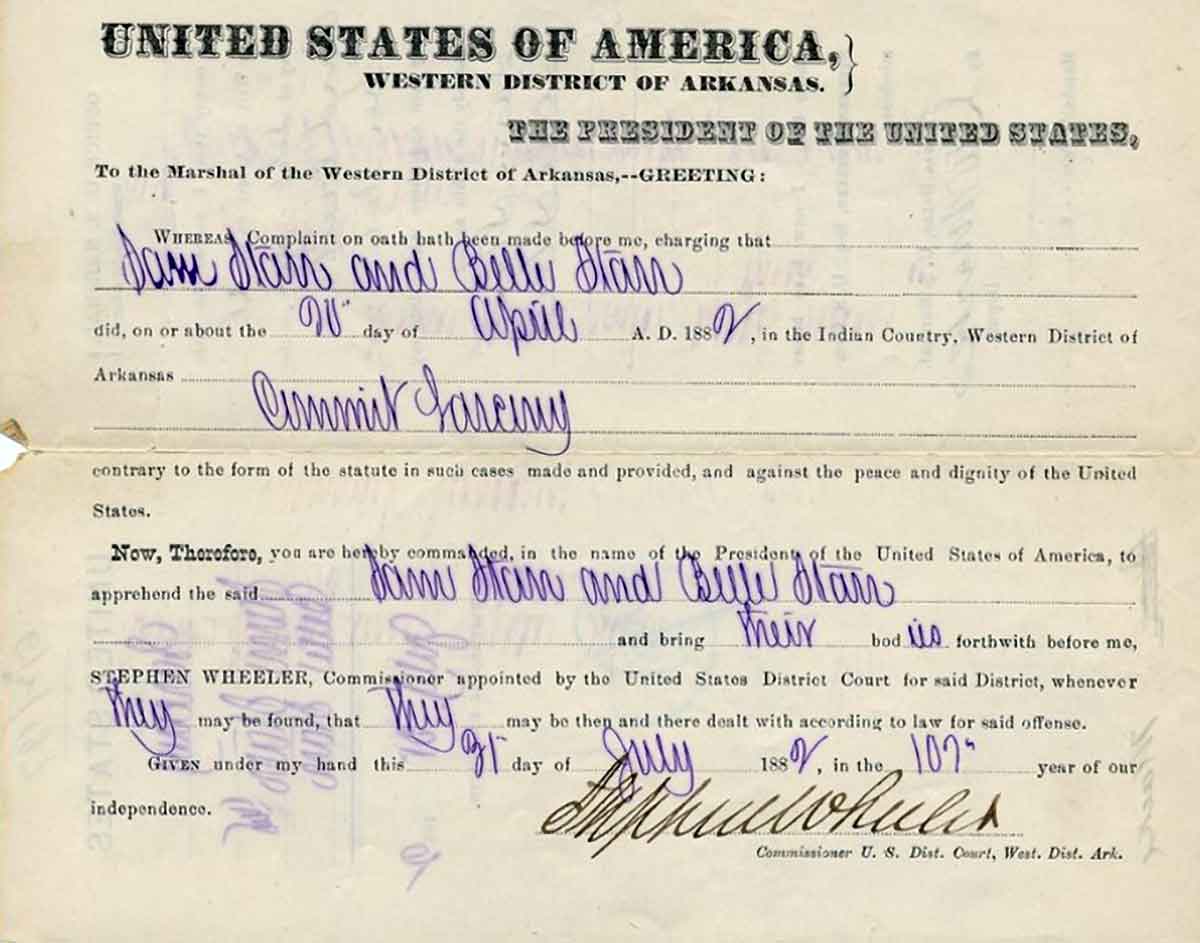 UNITED STATES OF AMERICA,
WESTERN DISTRICT OF ARKANSAS.
THE PRESIDENT OF THE UNITED STATES,
To the Marshal of the Western District of Arkansas,--GREETING:
WHEREAS, Complaint on oath hath been made before me, charging that
Sam Starr and Belle Starr
did, on or about the 20" day of April A. D. 1882, in the Indian Country, Western District of
Arkansas
Commit Larceny
contrary to the form of the statute in such cases made and provided, and against the peace and dignity of the United
States.
Now, Therefore, you are hereby commanded, in the name of the President of the United States of America, to
apprehend the said Sam Starr and Belle Starr
and bring their bodies forthwith before me,
STEPHEN WHEELER, Commissioner appointed by the United States District Court for said District, whenever
they may be found, that they may be then and there dealt with according to law for said offense.
GIVEN under my hand this 31 day of July 1882, in the 107" year of our
independence.
Stephen Wheeler
Commissioner U. S. Dist. Court, West. Dist. Ark.